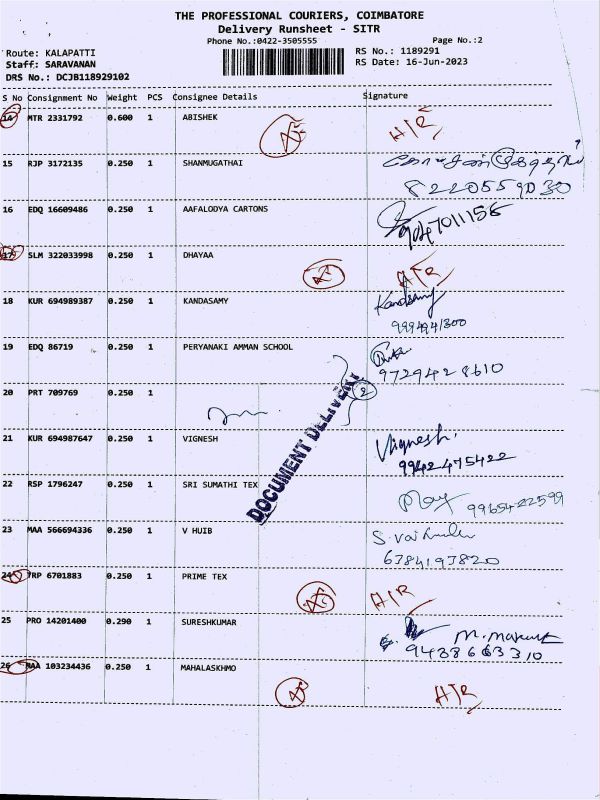 THE PROFESSIONAL COURIERS, COIMBATORE
Delivery Runsheet - SITR
Phone No.:0422-3505555 Page No.:2
Route: KALAPATTI RS No.: 1189291
Staff: SARAVANAN RS Date: 16-Jun-2023
DRS No.: DCJB118929102
S No Consignment No Weight PCS Consignee Details Signature
14 MTR 2331792 0.600 1 ABISHEK
15 RJP 3172135 0.250 1 SHANMUGATHAI
8220559030
16 EDQ 16609486 0.250 1 AAFALODYA CARTONS
17 SLM 322033998 0.250 1 DHAYAA
18 KUR 694989387 0.250 1 KANDASAMY Kandasamy
19 EDQ 86719 0.250 1 PERYANAKI AMMAN SCHOOL
9729428610
20 PRT 709769 0.250 1 2
DOCUMENT DELIVERY
21 KUR 694987647 0.250 1 VIGNESH Vignesh.
9942475422
22 RSP 1796247 0.250 1 SRI SUMATHI TEX
9965422599
23 MAA 566694336 0.250 1 V HUIB
24 TRP 6701883 0.250 1 PRIME TEX
25 PRO 14201400 0.290 1 SURESHKUMAR
9438663310
26 MAA 103234436 0.250 1 MAHALASKHMO